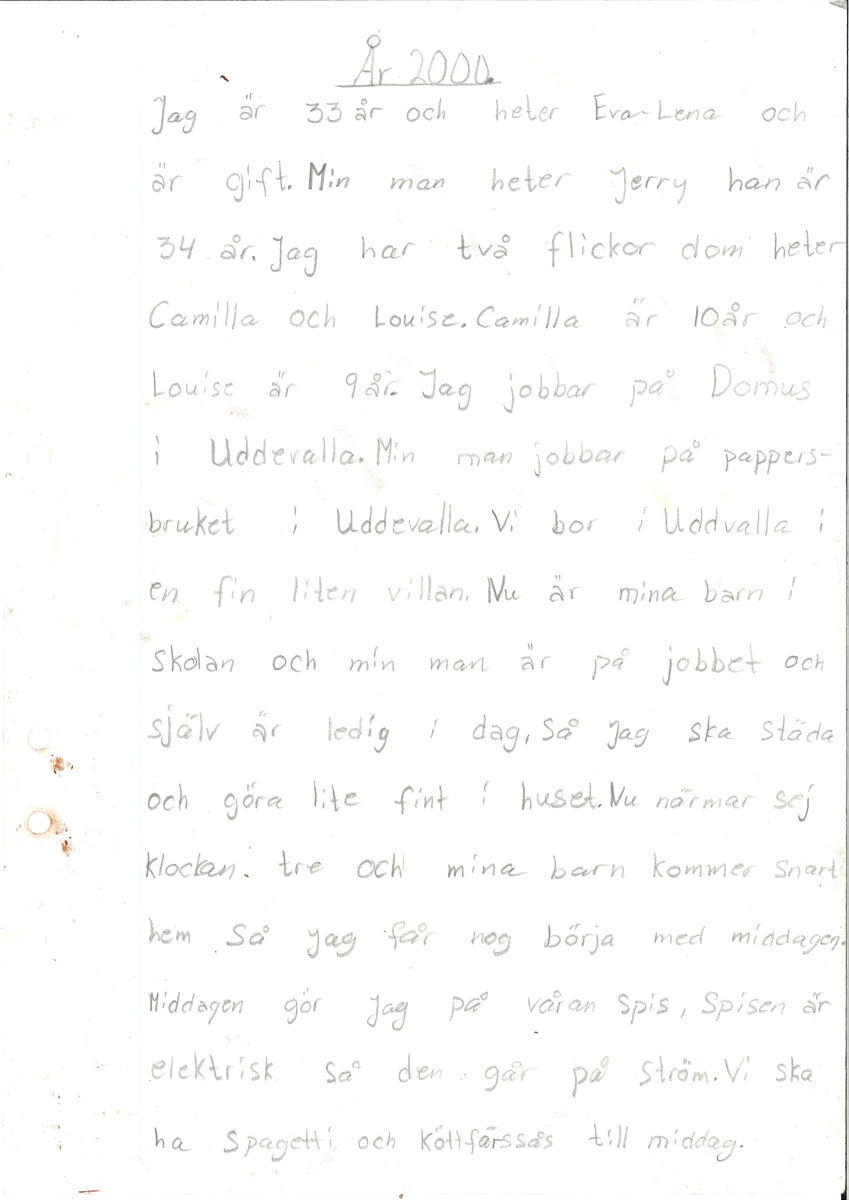 År 2000.
Jag är 33 år och heter Eva-Lena och
är gift. Min man heter Jerry han är
34 år. Jag har två flickor dom heter
Camilla och Louise. Camilla är 10 år och
Louise är 9 år. Jag jobbar på Domus
i Uddevalla. Min man jobbar på pappers-
bruket i Uddevalla. Vi bor i Uddvalla i
en fin liten villan. Nu är mina barn i
skolan och min man är på jobbet och
själv är ledig i dag, så jag ska städa
och göra lite fint i huset. Nu närmar sej
klockan. tre och mina barn kommer snart
hem så jag får nog börja med middagen.
Middagen gör jag på våran spis, spisen är
elektrisk så den går på ström. Vi ska
ha spagetti och köttfärssås till middag.